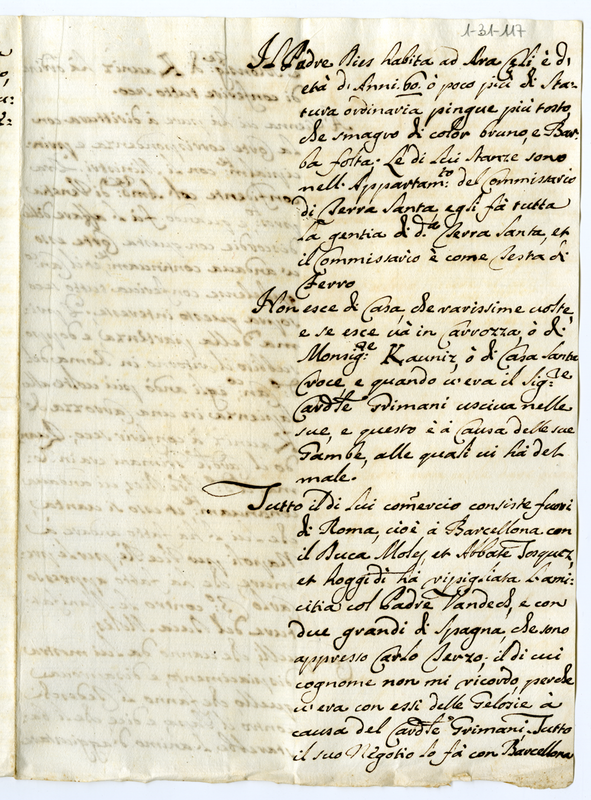 1-31-117
Il Padre Bies habita ad Ara Cęli è di
età di Anni 60. ò poco più di Sta-
tura ordinaria pingue più tosto,
che smagro di color bruno, e Bar-
ba folta. Le di lui Stanze sono
nell'Appartam:to del Commissario
di Terra Santa, egli fà tutta
la gentia di d:a Terra Santa, et
il Commissario è come Testa di
Ferro
Non esce di Casa, che rarissime uolte,
e se esce và in Carrozza, ò di
Monsig:re Kauniz, ò di Casa Santa
Croce, e quando u'era il Sig:re
Cardle Grimani usciua nelle
sue, e questo è à Causa delle sue
Gambe, alle quali ui hà del
male.
Tutto il di lui comercio consiste fuori
di Roma, cioè à Barcellona con
il Duca Moles et Abbate
et hoggidì hà ripigliata l'ami-
citia col Padre Vandech, e con
due grandi di Spagna, che sono
appresso Carlo Terzo; il di cui
cognome non mi ricordo, perche
u'era con essi delle Gelosie à
causa del Cardle Grimani. Tutto
il suo Negotio lo fà con Barcellona